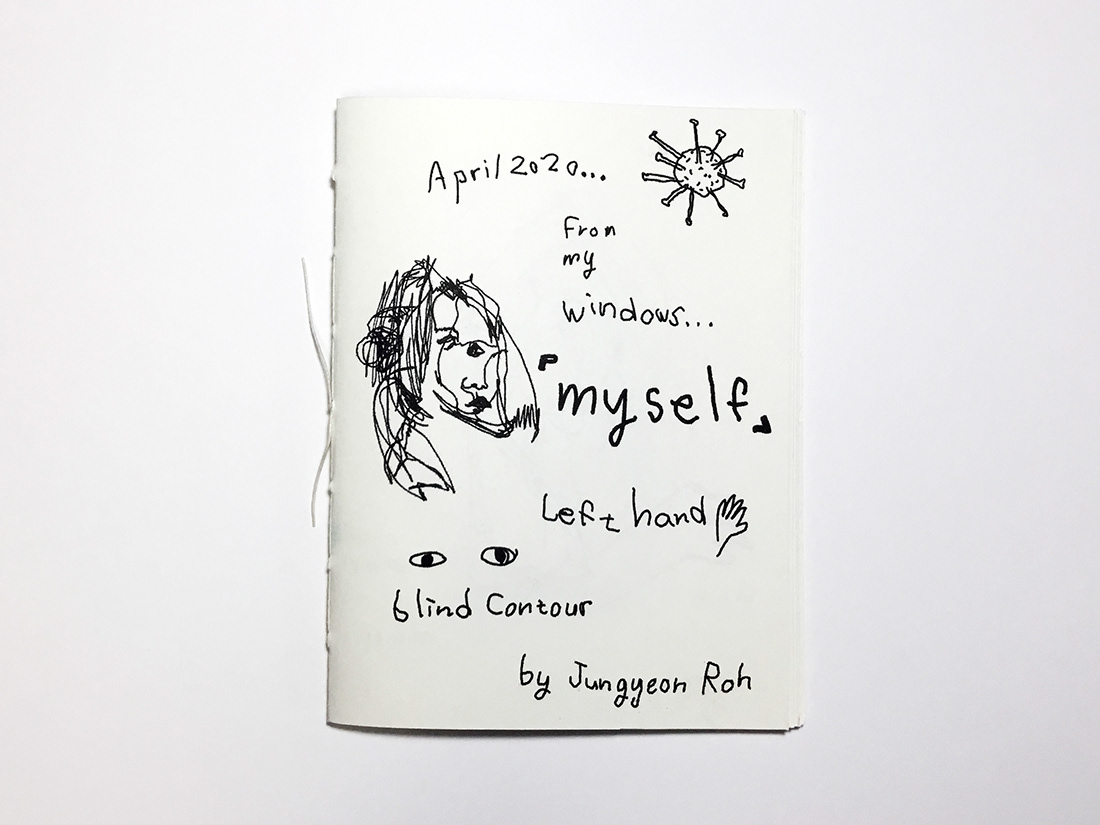 April 2020...
From
my
windows...
『myself』
Left hand
blind Contour
by Jungyeon Roh